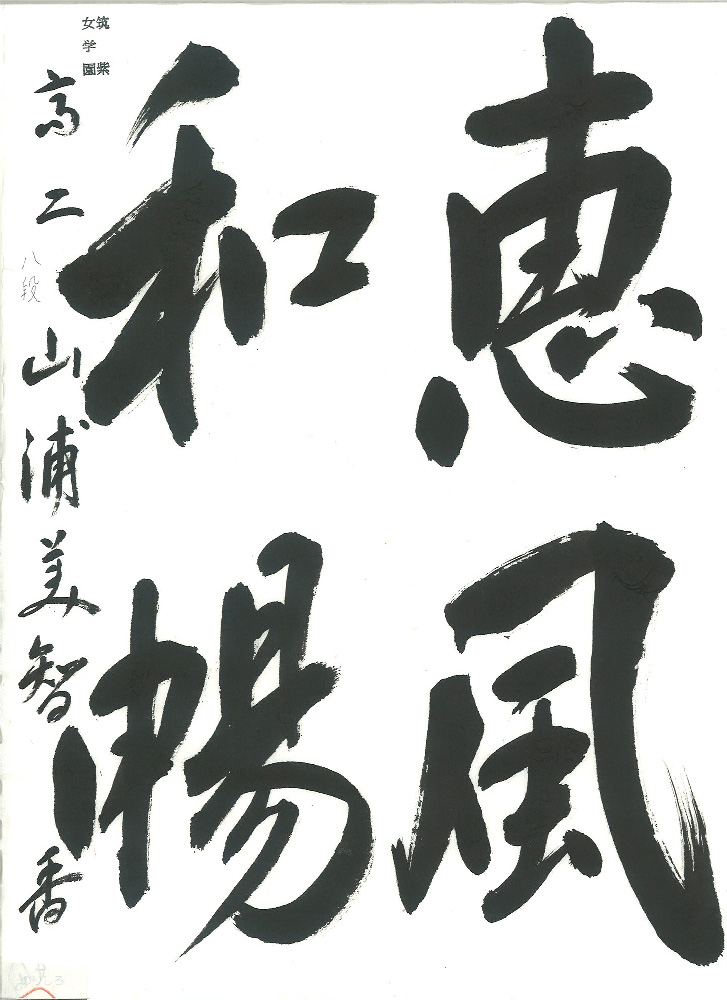 恵風
和暢
筑紫
女学園
高二
八段
山浦美智香